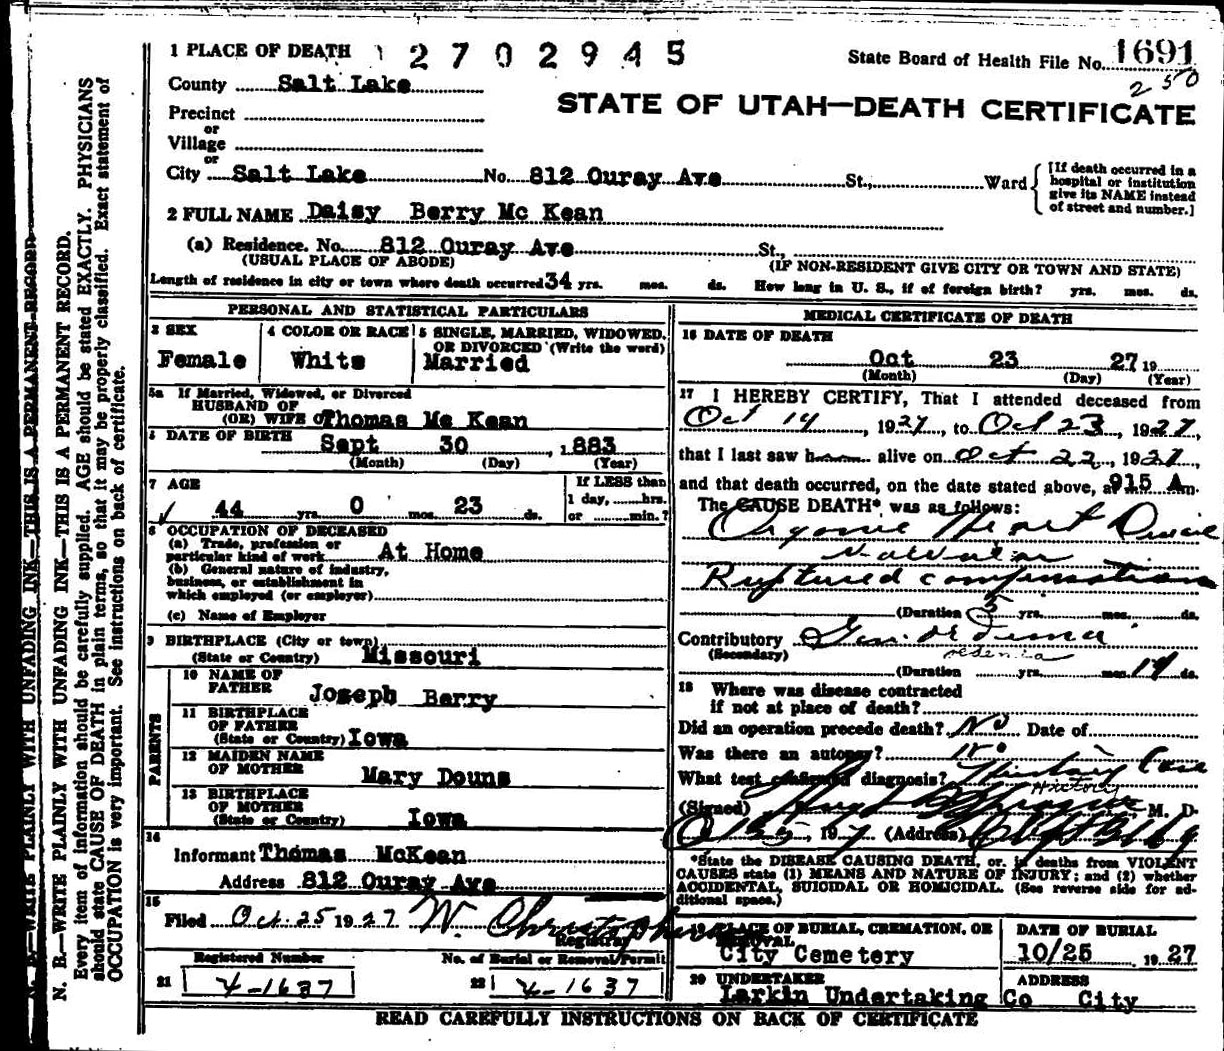 1 PLACE OF DEATH 2 7 0 2 9 4 5 State Board of Health File No. 1691
250
County Salt Lake
STATE OF UTAH—DEATH CERTIFICATE
Precinct
or
Village
or
City Salt Lake No. 812 Ouray Ave St., Ward
[If death occurred in a
hospital or institution
give its NAME instead
of street and number.]
2 FULL NAME Daisy Berry Mc Kean
(a) Residence. No. 812 Ouray Ave St.,
(USUAL PLACE OF ABODE) (IF NON-RESIDENT GIVE CITY OR TOWN AND STATE)
Length of residence in city or town where death occurred 34 yrs. mos. ds. How long in U. S., if of foreign birth? yrs. mos. ds.
PERSONAL AND STATISTICAL PARTICULARS
3 SEX 4 COLOR OR RACE 5 SINGLE, MARRIED, WIDOWED,
OR DIVORCED (Write the word)
Female White Married
5a If Married, Widowed, or Divorced
HUSBAND OF
(OR) WIFE OF Thomas Mc Kean
6 DATE OF BIRTH Sept 30, 1883
(Month) (Day) (Year)
7 AGE If LESS than
1 day, ......hrs.
44 yrs. 0 mos. 23 ds. or ......min.?
8 OCCUPATION OF DECEASED
(a) Trade, profession or
particular kind of work At Home
(b) General nature of industry,
business, or establishment in
which employed (or employer)
(c) Name of Employer
9 BIRTHPLACE (City or town)
(State or Country) Missouri
PARENTS
10 NAME OF
FATHER Joseph Berry
11 BIRTHPLACE
OF FATHER
(State or Country) Iowa
12 MAIDEN NAME
OF MOTHER Mary Douns
13 BIRTHPLACE
OF MOTHER
(State or Country) Iowa
14
Informant Thomas McKean
Address 812 Ouray Ave
15
Filed Oct. 25 1927 W. Christophersen
Registrar
Registered Number No. of Burial or Removal Permit
21 4-1637 22 4-1637
MEDICAL CERTIFICATE OF DEATH
16 DATE OF DEATH
Oct 23 27 19
(Month) (Day) (Year)
17 I HEREBY CERTIFY, That I attended deceased from
Oct 14, 1927, to Oct 23, 1927,
that I last saw h alive on Oct 22, 1927,
and that death occurred, on the date stated above, at 915 A m.
The CAUSE DEATH* was as follows:
Organic Heart Disease
Valvular
Ruptured compensation
(Duration 5 yrs. mos. ds.
Contributory Gen. oedema
(Secondary) oedema
(Duration yrs. mos. 14 ds.
18 Where was disease contracted
if not at place of death?
Did an operation precede death? No Date of
Was there an autopsy? No
What test confirmed diagnosis? History Case
History
(Signed) M. D.
19 (Address)
*State the DISEASE CAUSING DEATH, or, in deaths from VIOLENT
CAUSES state (1) MEANS AND NATURE OF INJURY; and (2) whether
ACCIDENTAL, SUICIDAL OR HOMICIDAL. (See reverse side for ad-
ditional space.)
19 PLACE OF BURIAL, CREMATION, OR
REMOVAL
City Cemetery
DATE OF BURIAL
10/25 1927
20 UNDERTAKER ADDRESS
Larkin Undertaking Co City
READ CAREFULLY INSTRUCTIONS ON BACK OF CERTIFICATE
N. B.—WRITE PLAINLY WITH UNFADING INK—THIS IS A PERMANENT RECORD
N. B.—WRITE PLAINLY WITH UNFADING INK—THIS IS A PERMANENT RECORD.
Every item of information should be carefully supplied. AGE should be stated EXACTLY. PHYSICIANS
should state CAUSE OF DEATH in plain terms, so that it may be properly classified. Exact statement of
OCCUPATION is very important. See instructions on back of certificate.